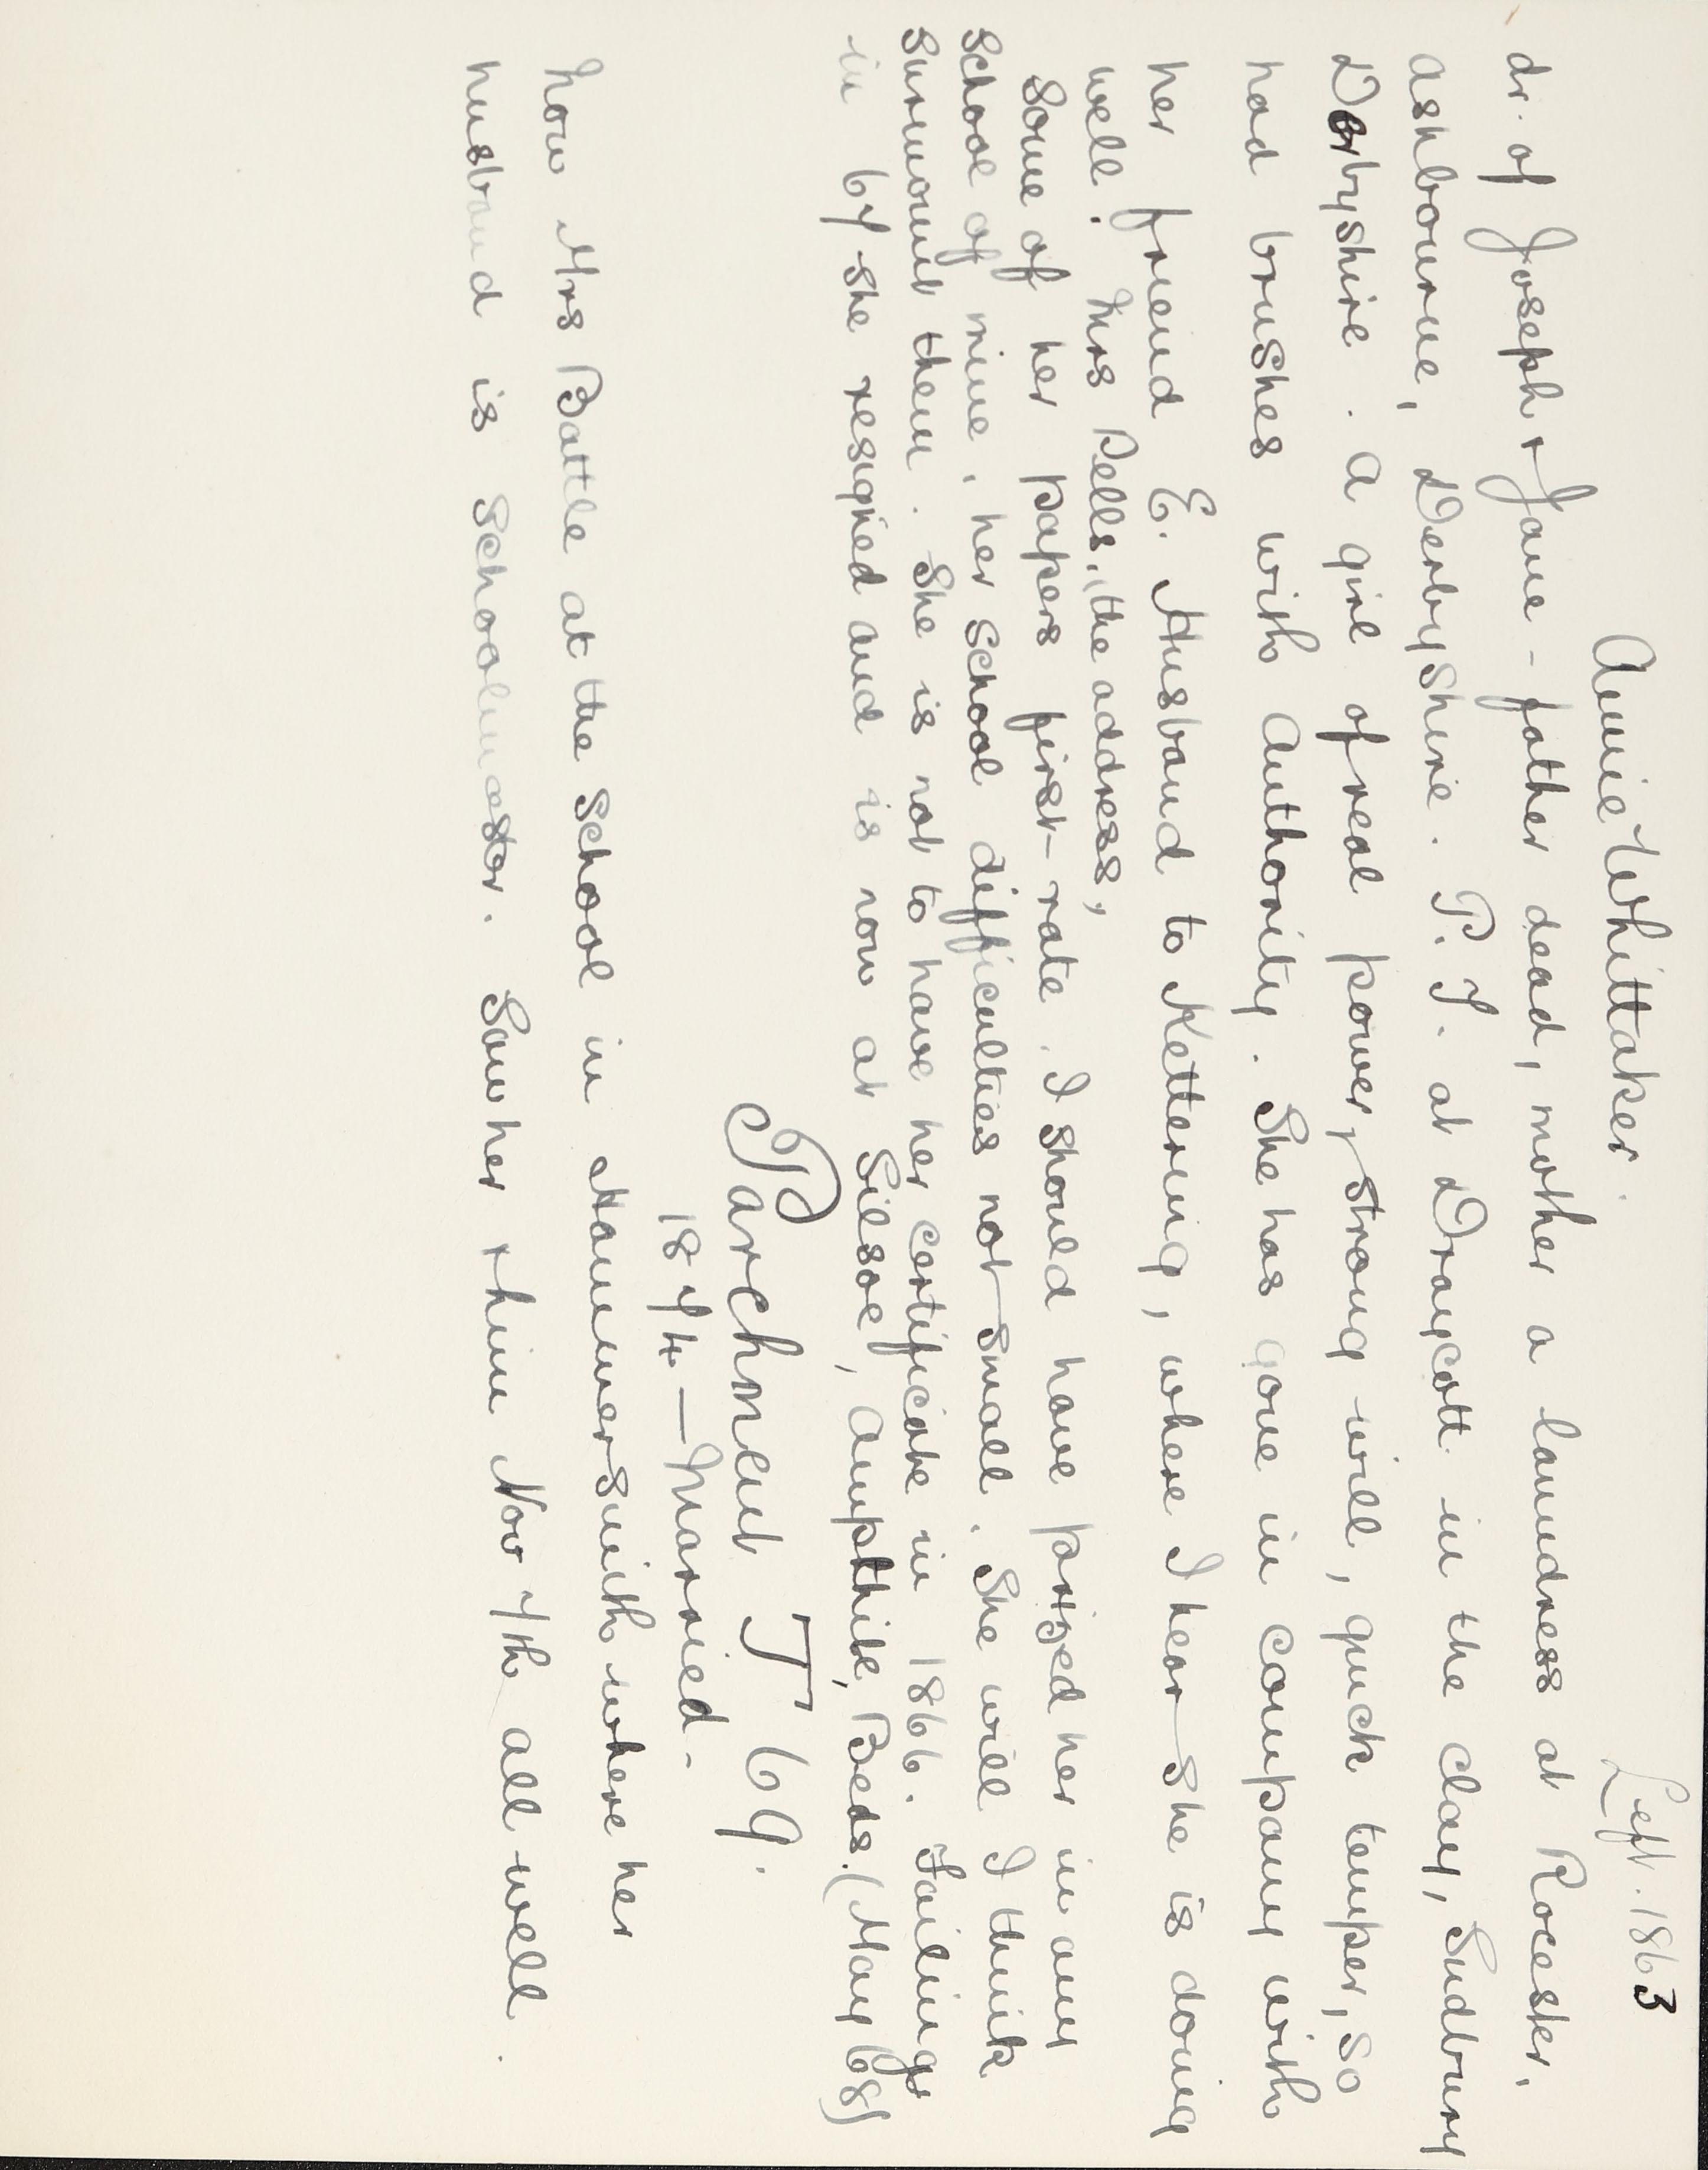 Left. 1863
Annie Whittaker.
dr. of Joseph & Jane - father dead, mother a laundress at Rocester,
Ashbourne, Derbyshire. P. T. at Draycott in the Clay, Sudbury
Derbyshire. A girl of real power, strong will, quick temper, so
had brushes with Authority. She has gone in company with
her friend E. Husband to Kettering, where I hear she is doing
well. Mrs Pells, the address,
Some of her papers first-rate. I should have prized her in any
school of mine, her school difficulties not small. She will I think
surmount them. She is not to have her certificate in 1866. Failings
in 67 she resigned and is now at Silsoe, Ampthill, Beds. (May 68)
Parchment T 69.
1874 — Married -
now Mrs Battle at the School in Hammersmith where her
husband is Schoolmaster. Saw her & him Nov 7th all well.